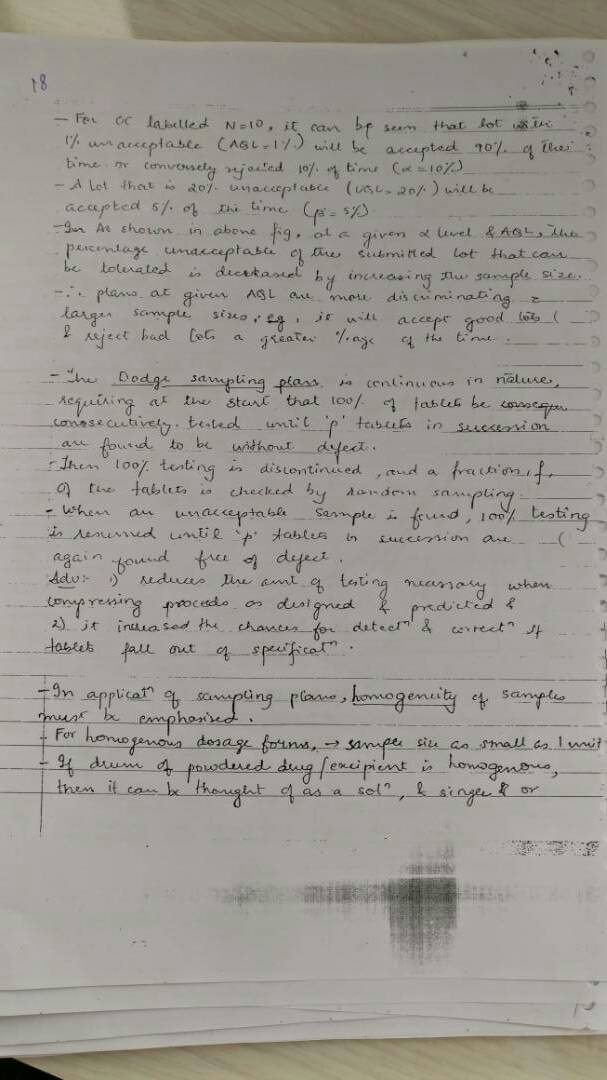 18
- For OC labelled N=10, it can be seen that lot with
1% unacceptable (AQL=1%) will be accepted 90% of the
time or conversely rejected 10% of time (α=10%)
- A lot that is 20% unacceptable (UQL=20%) will be
accepted 5% of the time (β=5%)
- As shown in above fig, at a given α level & AQL, the
percentage unacceptable of the submitted lot that can
be tolerated is decreased by increasing the sample size.
- ∴ plans at given AQL are more discriminating
larger sample sizes, eg, it will accept good lots (
& reject bad lots a greater %age of the time.
- The Dodge sampling plans is continuous in nature,
requiring at the start that 100% of tablets be
consecutively tested until 'p' tablets in succession
are found to be without defect.
- Then 100% testing is discontinued, and a fraction, f,
of the tablets is checked by random sampling
- When an unacceptable sample is found, 100% testing
is resumed until 'p' tables in succession are (
again found free of defect.
Adv:- 1) reduces the amt of testing necessary when
compressing proceeds as designed & predicted &
2) it increased the chances for detectn & correctn if
tablets fall out of specificatn.
- In applicatn of sampling plans, homogeneity of samples
must be emphasised.
- For homogenous dosage forms, → sample size as small as 1 unit
- If drum of powdered drug/excipient is homogenous,
then it can be thought of as a soln, & singer & or